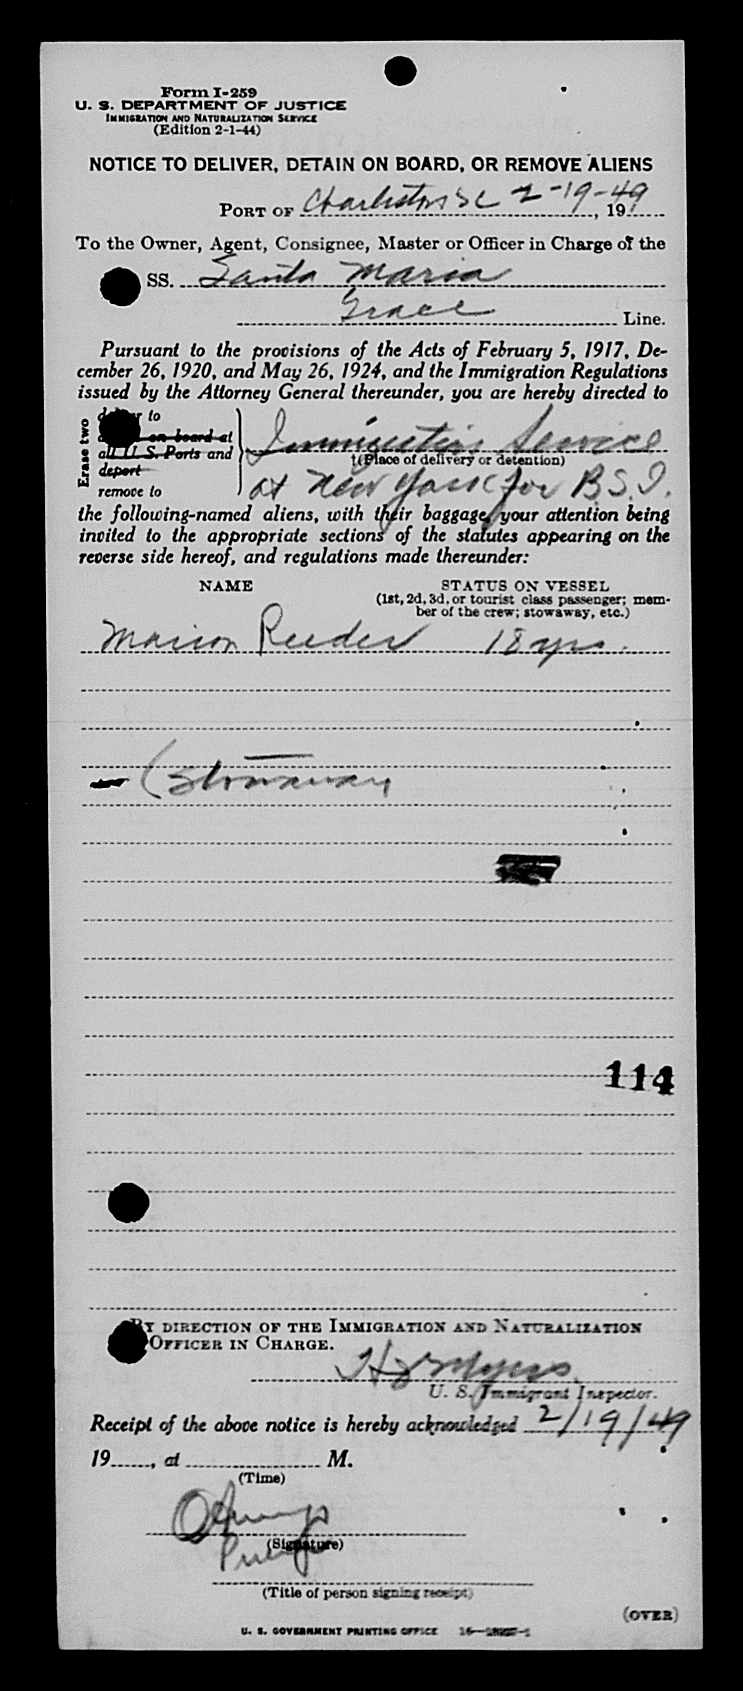 Form I-259
U. S. DEPARTMENT OF JUSTICE
IMMIGRATION AND NATURALIZATION SERVICE
(Edition 2-1-44)
NOTICE TO DELIVER, DETAIN ON BOARD, OR REMOVE ALIENS
PORT OF Charleston SC 2-19-49, 19
To the Owner, Agent, Consignee, Master or Officer in Charge of the
SS. Santa Maria
Grace Line.
Pursuant to the provisions of the Acts of February 5, 1917, De-
cember 26, 1920, and May 26, 1924, and the Immigration Regulations
issued by the Attorney General thereunder, you are hereby directed to
Erase two
to
on board at
all U. S. Ports and
deport
remove to
Immigration Service
(Place of delivery or detention)
at New York for B.S.I.
the following-named aliens, with their baggage, your attention being
invited to the appropriate sections of the statutes appearing on the
reverse side hereof, and regulations made thereunder:
NAME STATUS ON VESSEL
(1st, 2d, 3d, or tourist class passenger; mem-
ber of the crew; stowaway, etc.)
Marion Reeder 18 yrs.
(Stowaway
114
BY DIRECTION OF THE IMMIGRATION AND NATURALIZATION
OFFICER IN CHARGE.
Myers
U. S. Immigrant Inspector.
Receipt of the above notice is hereby acknowledged 2/19/49
19......, at M.
(Time)
(Signature)
(Title of person signing receipt)
(OVER)
U. S. GOVERNMENT PRINTING OFFICE